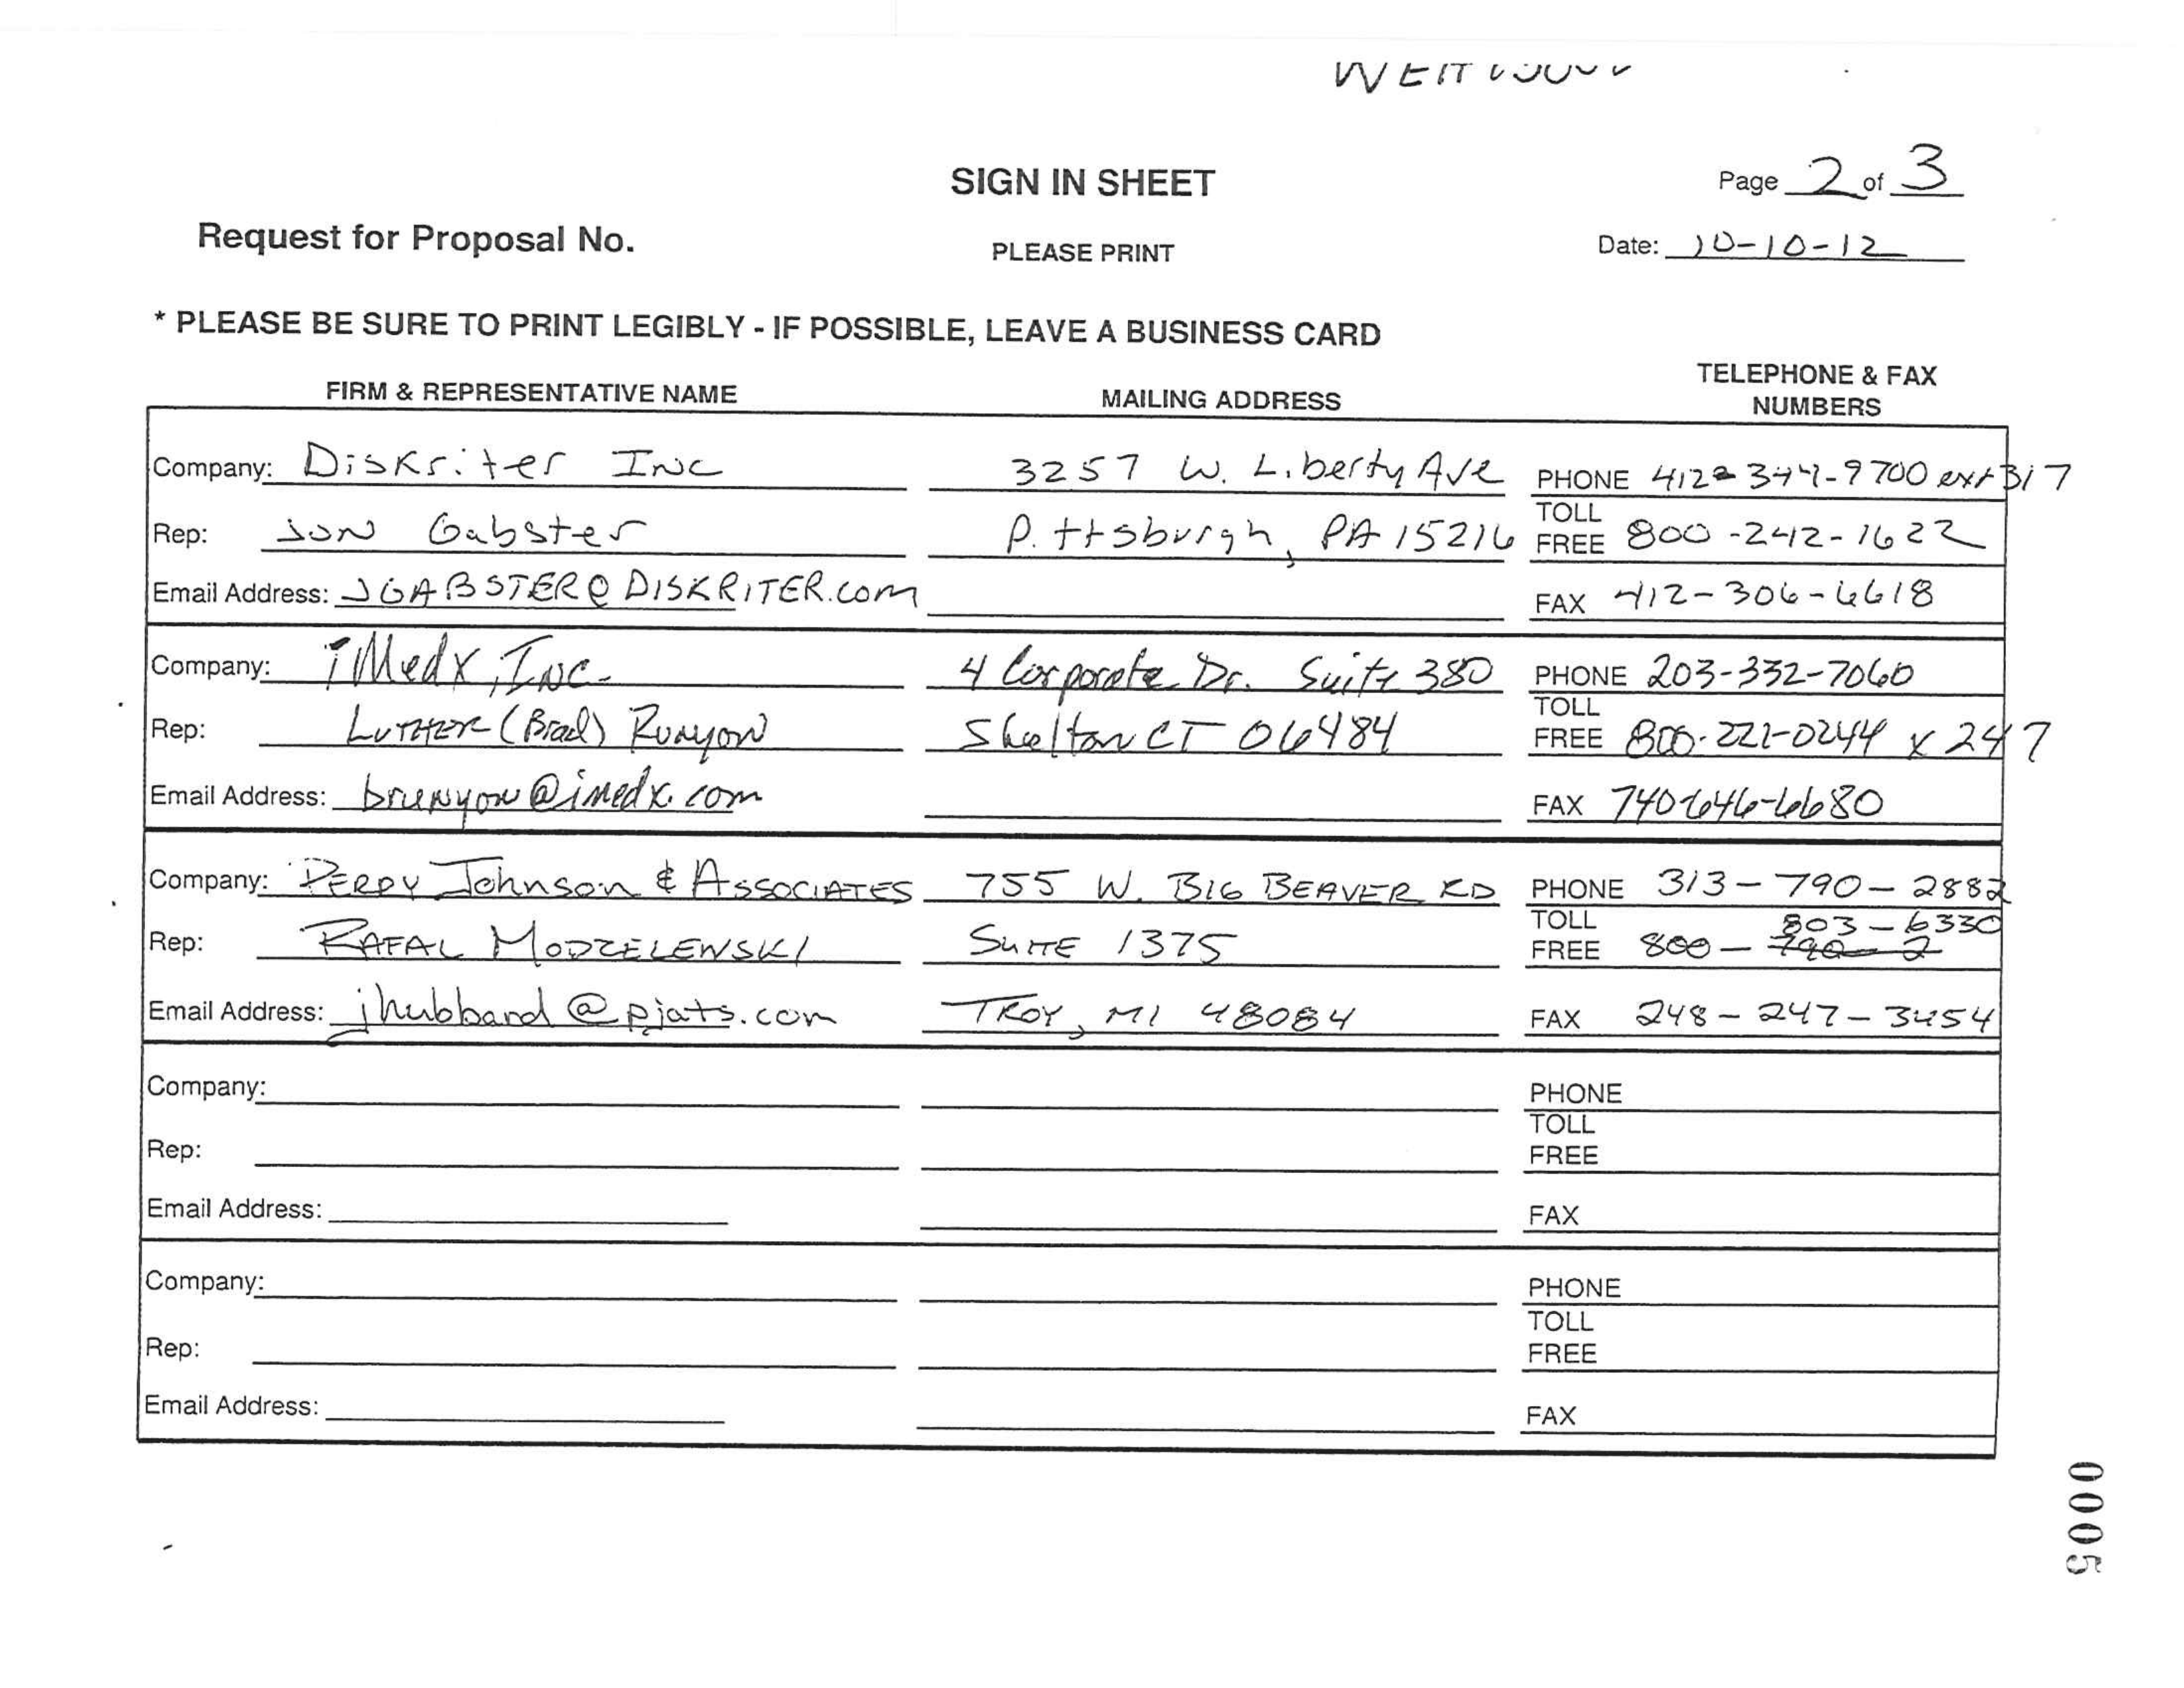 SIGN IN SHEET
Page 2 of 3
Request for Proposal No.
PLEASE PRINT
Date: 10-10-12
* PLEASE BE SURE TO PRINT LEGIBLY - IF POSSIBLE, LEAVE A BUSINESS CARD
FIRM & REPRESENTATIVE NAME
MAILING ADDRESS
TELEPHONE & FAX
NUMBERS
Company: Diskriter Inc 3257 W. Liberty Ave PHONE 412-344-9700 ext 317
Rep: Jon Gabster Pittsburgh, PA 15216 TOLL FREE 800-242-1622
Email Address: JGABSTER@DISKRITER.com FAX 412-306-6618
Company: iMedX, Inc. 4 Corporate Dr. Suite 380 PHONE 203-332-7060
Rep: Luther (Brad) Runyon Shelton CT 06484 TOLL FREE 800-221-0244 x 247
Email Address: brunyon@imedx.com FAX 740-646-6680
Company: PERRY Johnson & ASSOCIATES 755 W. BIG BEAVER RD PHONE 313-790-2882
Rep: RAFAL MODZELEWSKI SUITE 1375 TOLL FREE 800-803-6330
Email Address: jhubbard@pjats.com TROY, MI 48084 FAX 248-247-3454
Company: PHONE
Rep: TOLL FREE
Email Address: FAX
Company: PHONE
Rep: TOLL FREE
Email Address: FAX
0005